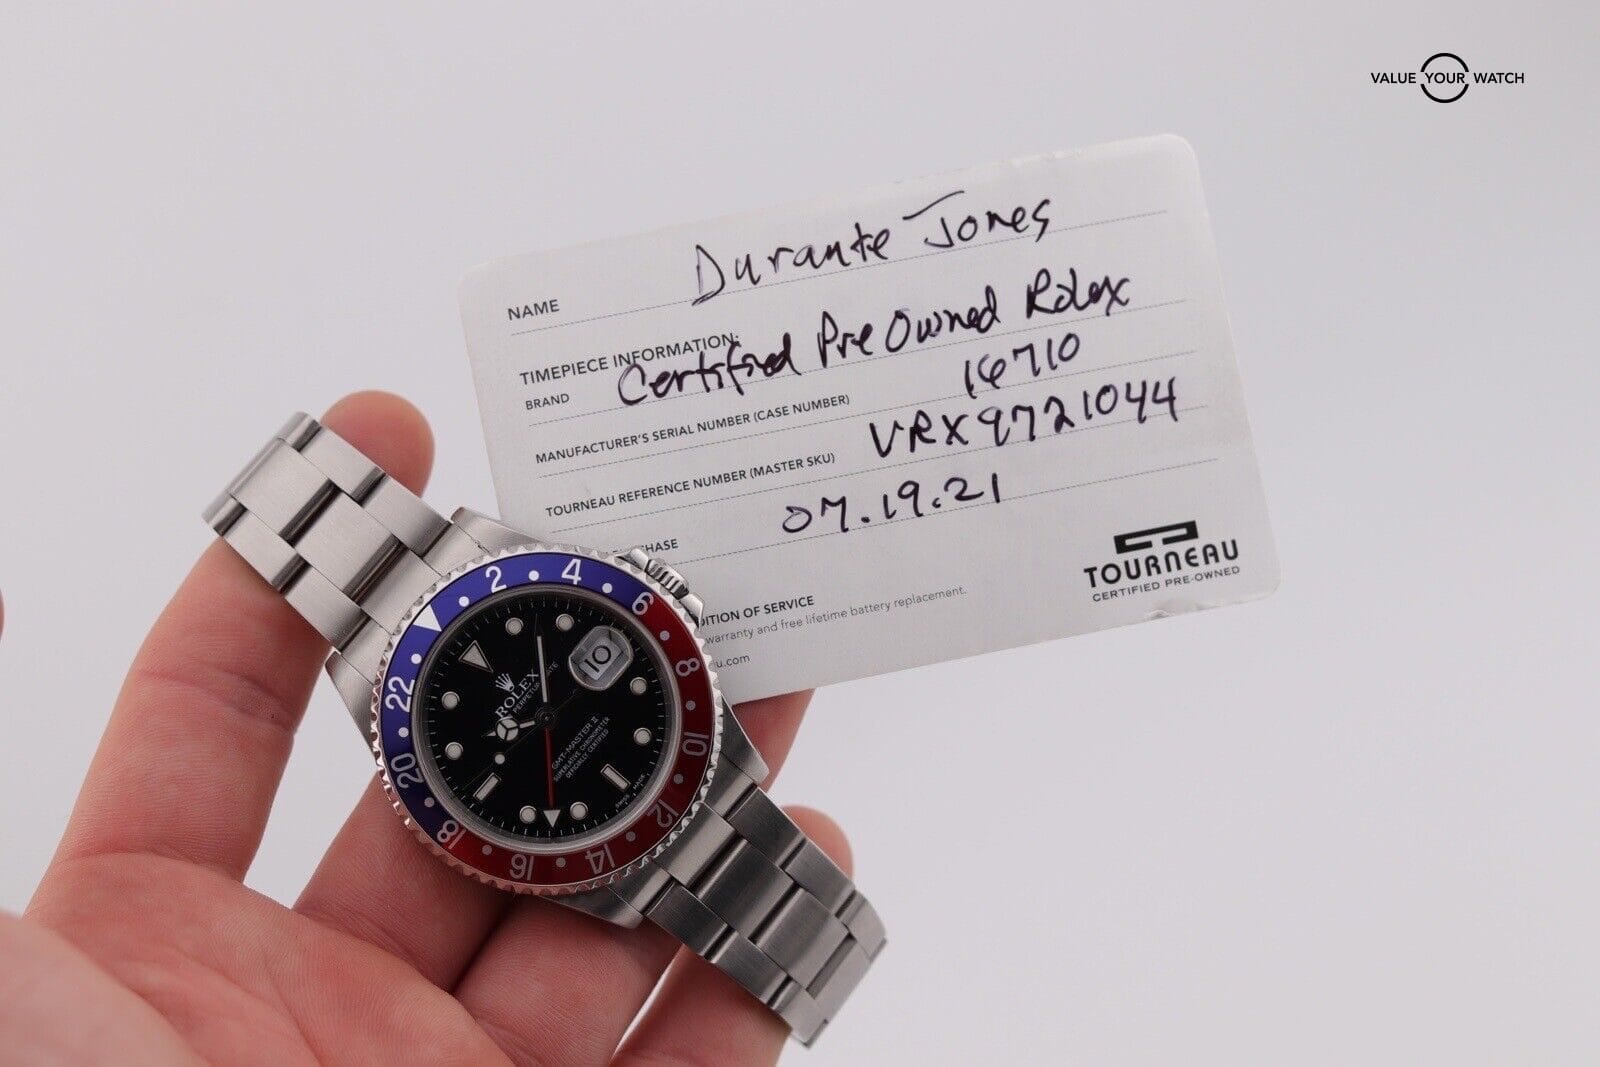 VALUE YOUR WATCH
NAME Durante Jones
TIMEPIECE INFORMATION:
BRAND Certified Pre Owned Rolex
MANUFACTURER'S SERIAL NUMBER (CASE NUMBER) 16710
TOURNEAU REFERENCE NUMBER (MASTER SKU) VRX9721044
CHASE 07.19.21
TOURNEAU
CERTIFIED PRE-OWNED
DITION OF SERVICE
warranty and free lifetime battery replacement.
u.com
2 4 6 8 10 12 14 16 18 20 22
10
ROLEX
PERPETUAL DATE
GMT-MASTER II
SUPERLATIVE CHRONOMETER
OFFICIALLY CERTIFIED
SWISS MADE